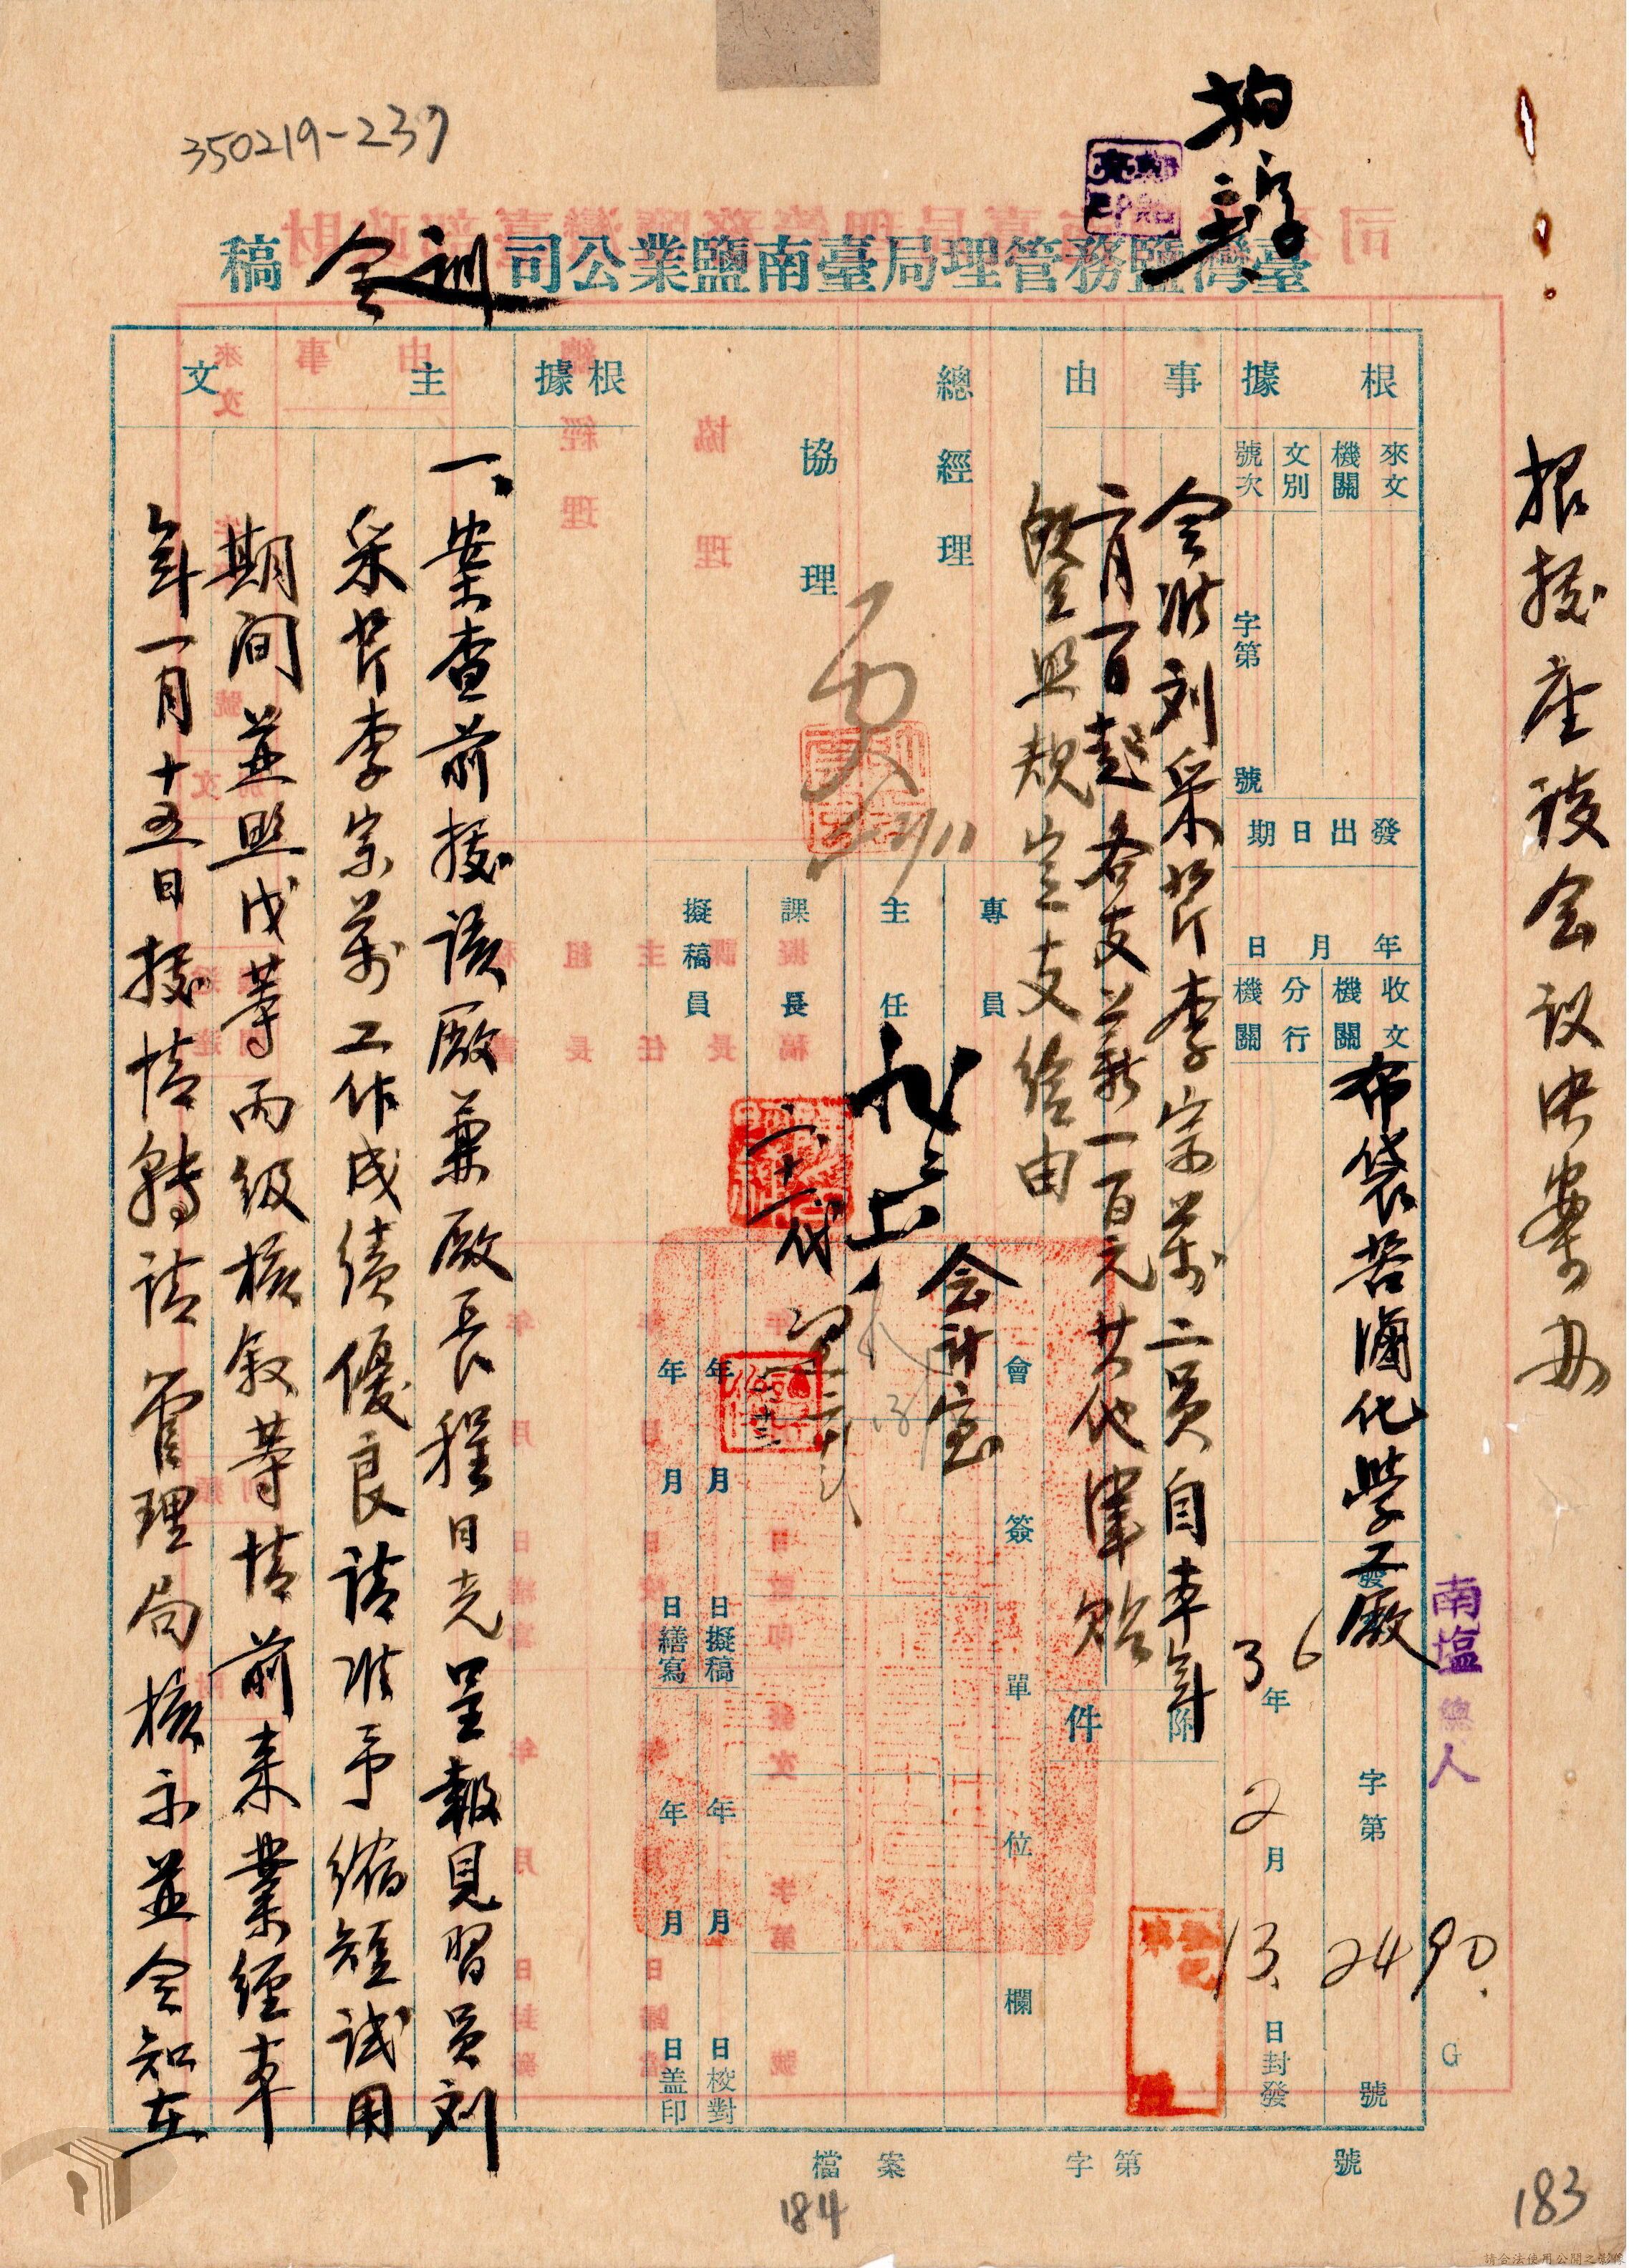 350219-237
臺灣鹽務管理局臺南鹽業公司 訓令 稿
根據座談会议决案办
南塩總人
根據
來文機關
文別
號次
字第 號
發出日期
年 月 日
收文機關
布袋苦滷化學工廠
分行機關
發 字第 2490. 號
36年2月13.日封發
事由
令准刘采芹李宗萬二員自本年
二月一日起各支薪一百元其他津貼
暨照規定支給由
附件
總經理
協理
專員
主任
課長
擬稿員
会计室
會簽單位欄
年 月 日擬稿
年 月 日繕寫
年 月 日校對
年 月 日盖印
根據
主文
一、案查前據該廠兼廠長程日光呈報見習員刘
采芹李宗萬工作成績優良請准予縮短試用
期间並照戊等丙级核叙等情前来業經本
年一月十五日據情轉請管理局核示並令知在
檔案 字第 號
184
183
G
請合法使用公開之影像